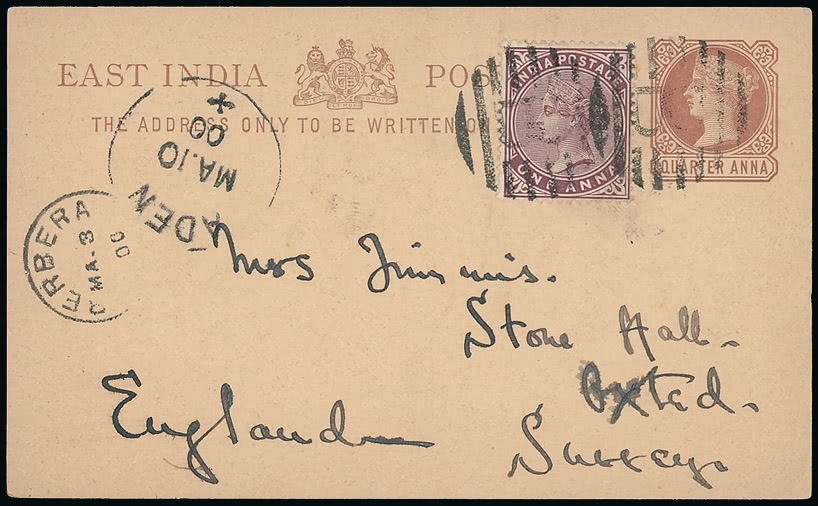 EAST INDIA POS
THE ADDRESS ONLY TO BE WRITTEN O
INDIA POSTAGE
ONE ANNA
QUARTER ANNA
ADEN
MA.10
00
BERBERA
MA.3
00
Mrs Jimmis.
Stone Hall.
Oxted.
Surrey.
England